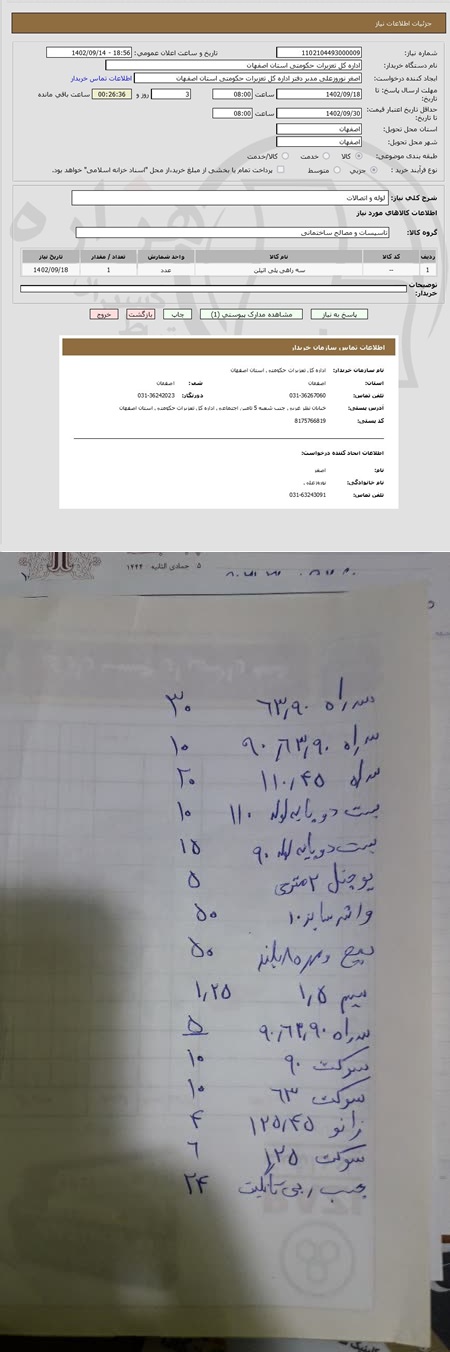 جزئیات اطلاعات نیاز
شماره نیاز: 1102104493000009 تاریخ و ساعت اعلان عمومی: 18:56 - 1402/09/14
نام دستگاه خریدار: اداره کل تعزیرات حکومتی استان اصفهان
ایجاد کننده درخواست: اصغر نوروزعلی مدیر دفتر اداره کل تعزیرات حکومتی استان اصفهان اطلاعات تماس خریدار
مهلت ارسال پاسخ: تا تاریخ: 1402/09/18 ساعت 08:00 3 روز و 00:26:36 ساعت باقی مانده
حداقل تاریخ اعتبار قیمت: تا تاریخ: 1402/09/30 ساعت 08:00
استان محل تحویل: اصفهان
شهر محل تحویل: اصفهان
طبقه بندی موضوعی: کالا خدمت کالا/خدمت
نوع فرآیند خرید : جزیی متوسط پرداخت تمام یا بخشی از مبلغ خرید،از محل "اسناد خزانه اسلامی" خواهد بود.
شرح کلی نیاز: لوله و اتصالات
اطلاعات کالاهای مورد نیاز
گروه کالا: تاسیسات و مصالح ساختمانی
ردیف کد کالا نام کالا واحد شمارش تعداد / مقدار تاریخ نیاز
1 -- سه راهی پلی اتیلن عدد 1 1402/09/18
توضیحات خریدار:
پاسخ به نیاز مشاهده مدارک پیوستی (1) چاپ بازگشت خروج
اطلاعات تماس سازمان خریدار
نام سازمان خریدار: اداره کل تعزیرات حکومتی استان اصفهان
استان: اصفهان شهر: اصفهان
تلفن تماس: 031-36267060 دورنگار: 031-36242023
آدرس پستی: خیابان نظر غربی جنب شعبه 5 تامین اجتماعی اداره کل تعزیرات حکومتی استان اصفهان
کد پستی: 8175766819
اطلاعات ایجاد کننده درخواست:
نام: اصغر
نام خانوادگی: نوروزعلی
تلفن تماس: 031-63243091
۵ جمادی الثانیه ۱۴۴۴
سه راه ۶۳٫۹۰ ۳۰
سه راه ۹۰٫۶۳٫۹۰ ۱۰
سه راه ۱۱۰٫۴۵ ۲۰
بست دو پایه لوله ۱۱۰ ۱۰
بست دو پایه لوله ۹۰ ۱۵
یوچنل ۲ متری ۵
واشر سایز ۱۰ ۵۰
پیچ و مهره ۸ بلند ۵۰
سیم ۱٫۵ ۱٫۲۵
سه راه ۹۰٫۶۳٫۹۰ ۵
سوکت ۹۰ ۱۰
سوکت ۶۳ ۱۰
زانو ۱۲۵٫۴۵ ۴
سوکت ۱۲۵ ۶
چسب ۲۴